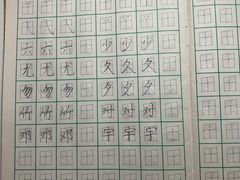 弋 弋 弋
六 六 六 少 少 少
尤 尤 尤 久 久 久
勿 勿 勿 夕 夕 夕
竹 竹 竹 对 对 对
邓 邓 邓 宇 宇 宇